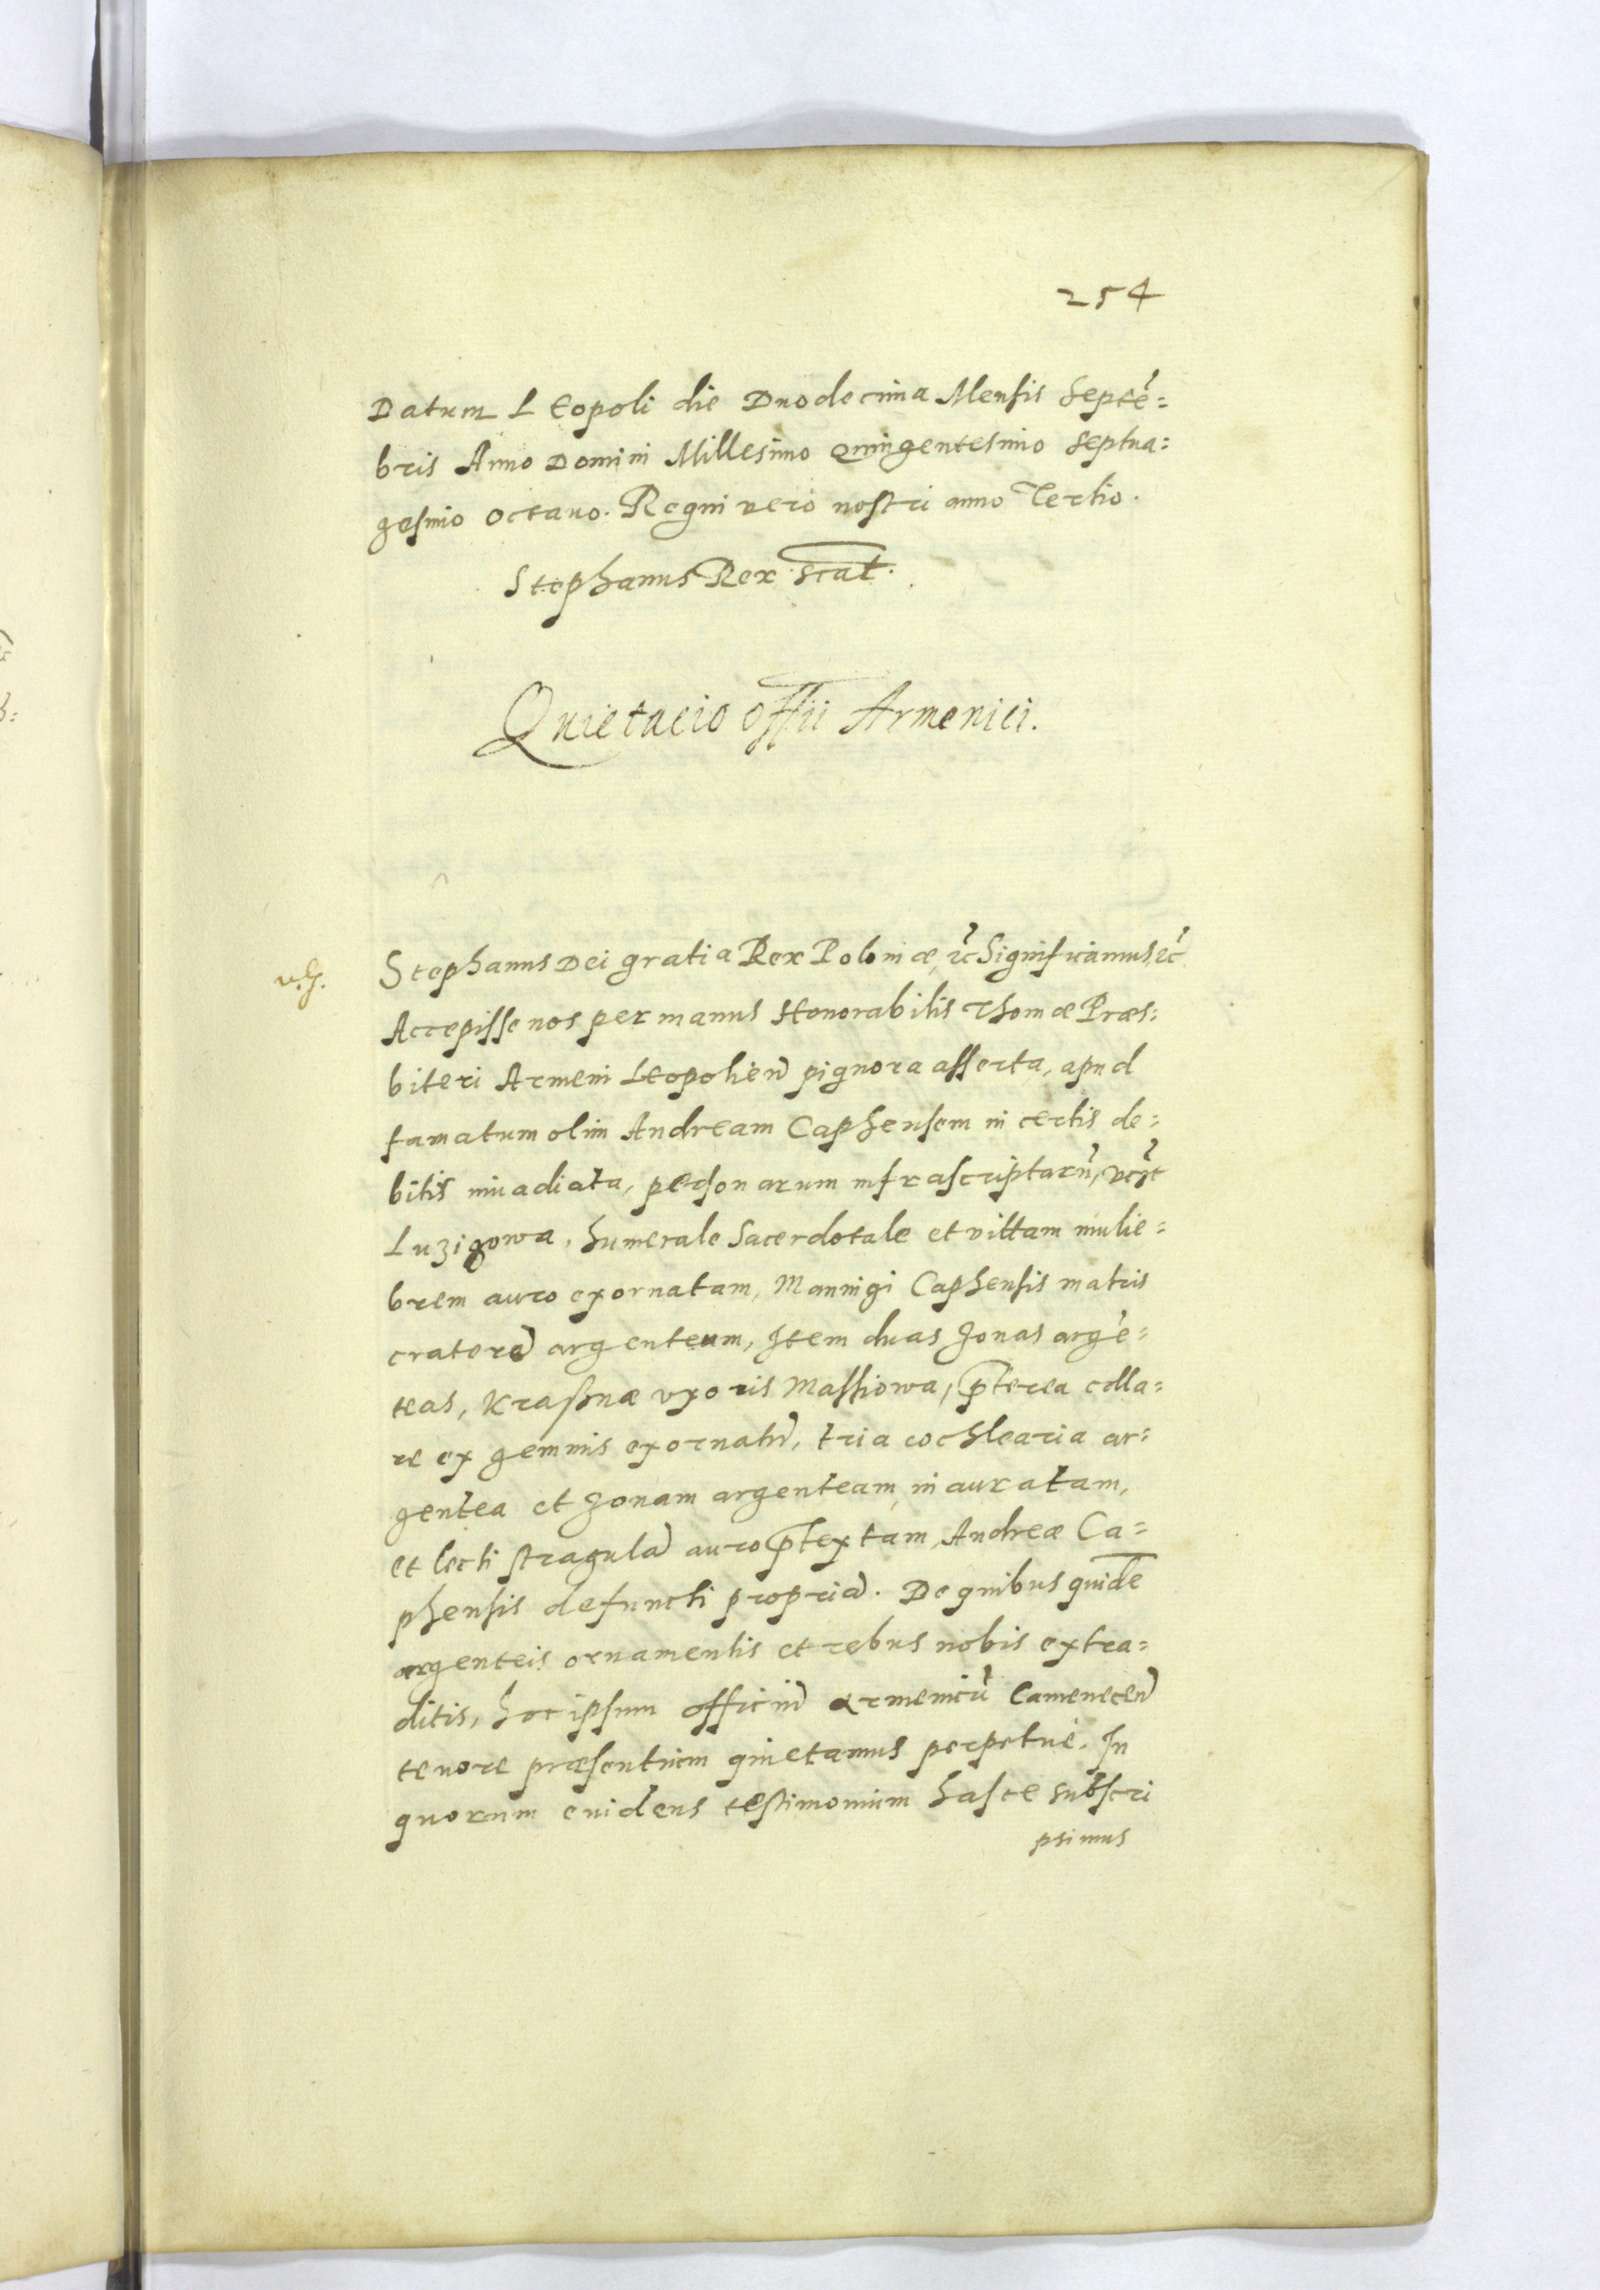 254
Datum LEopoli die Duodecima Mensis Septe͂=
bris Anno Domini Millesimo Quingentesimo Septua=
gesimo Octauo. Regni vero nostri anno Tertio.
Stephanus Rex scat̄.
Quietacio offii Armenici.
Stephanus Dei gratia Rex Poloniæ, ꝛc̃ Significamus ꝛc̃
Accepisse nos per manus Honorabilis Thomæ Præs=
biteri Armeni Leopolien̄ pignora asserta, apud
famatum olim Andream Caphensem in certis de=
bitis inuadiata, personarum infrascriptaru͂, vcꝫt
Luzigowa, humerale Sacerdotale et vittam mulie=
brem auro exornatam, Mannigi Caphensis matris
craterē argenteum, Item duas Zonas argē=
teas, Krassnæ vxoris Massiowa, p̄terea colla=
re ex gemmis exornatū, tria cochlearia ar=
gentea et Zonam argenteam, inauratam,
et lecti stragulā auro p̄textam, Andreæ Ca=
phensis defuncti propriā. De quibus quidē
argenteis ornamentis et rebus nobis extra=
ditis, hoc ipsum officiū Armenicū Camenecen̄
tenore præsentium quietamus perpetuè. In
quorum euidens testimonium hasce subscri
psimus